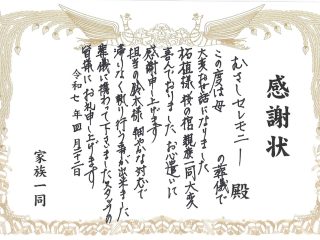 感謝状
むさしセレモニー 殿
この度は母 の葬儀で
大変お世話になりました
担当の鈴木様 細やかな対応で
感謝申し上げます
滞りなく執り行う事が出来ました
葬儀に携わって下さいましたスタッフの
皆様にお礼申し上げます
令和七年四月二十二日
家族一同